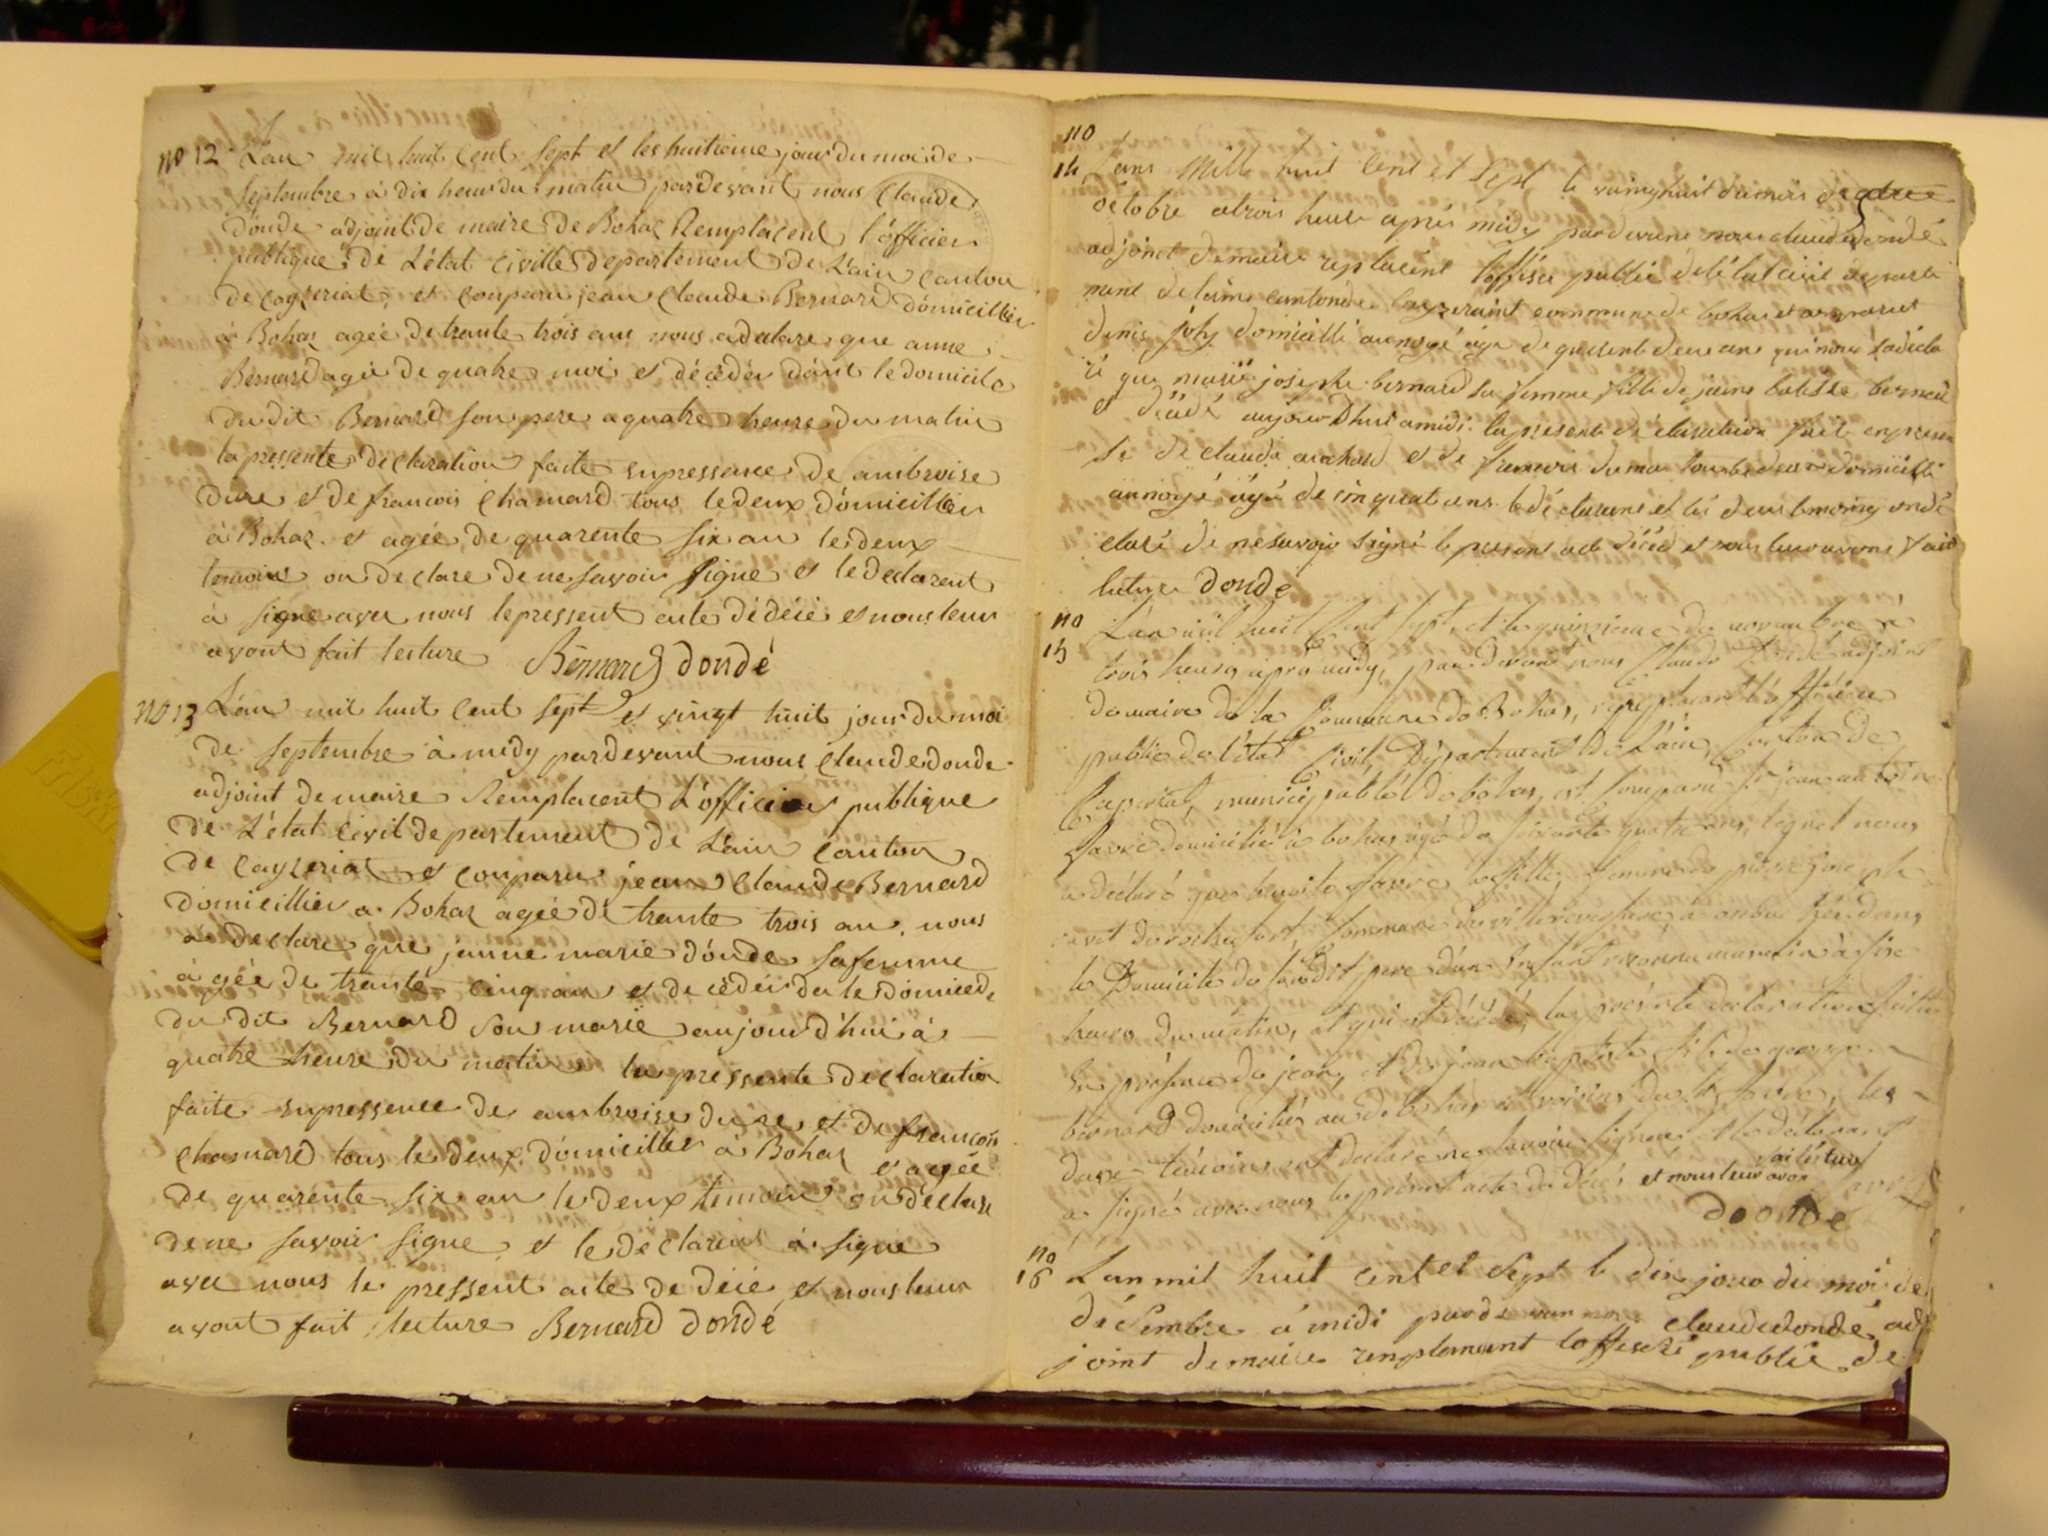 no 12 L'an mil huit cent sept et les huitieme jour du moi de
septembre à dix heur du matin pardevant nous Claude
dondé adjoint de maire de Bohaz Remplacent l'officier
publique de L'état Civille departement de L'ain canton
de Cayzeriat, et comparu jean Claude Bernard domicillier
à Bohaz agée de trante trois ans nous a declare que anne
Bernard agée de quatre moi et décédée dant le domicile
du dit Bernard son pere a quatre heure du matin
la pressente declaration faite enpressence de ambroise
dure et de francois Chamard tous le deux domicillier
à Bohaz et agée de quarente six an le deux
temoins on declare de ne savoir signe et le declarent
à signe avec nous le pressent acte dédécé et nous leur
avont fait lecture Bernard dondé
no 13 L'an mil huit cent sept et vingt huit jour du moi
de septembre à midy pardevant nous Claude donde
adjoint de maire Remplacent L'officier publique
de L'état Civil departement de L'ain Canton
de Cayzeriat et comparu jean Claude Bernard
domicillier a Bohaz agée de trante trois an nous
a declare que janne marie dónde sa femme
agée de trante cinq an et decédéi da le domicile
du dit Bernard son marie aujourd'hui à
quatre heure du matin la pressente declaration
faite enpressence de ambroise dure et de francois
Chamard tous le deux domicillier à Bohaz et agée
de quarente six an le deux temoin on déclare
de ne savoir signe et le declarent à signe
avec nous le pressent acte de décé et nous leur
avont fait lecture Bernard dondé
no
14 Lans mille huit cent et sept le vainghuit du mois de
octobre a trois heure aprés midy pardevant nous claude dondé
adjoint demaire replacent l'offisier public de létat civil departe
ment de lains canton de Ceyzeriat commune de bohas et comparut
denis joly domicillé au noyé agé de quarente deux ans qui nous a décla
ré que marie josephe bernard sa femme fille de jean batiste bernard
et décédé aujourdhui a midi la presente déclaration fait enpresen
se de claude et de francois tous les deux domicillé
au noyé âgé de cinquant ans le déclarant et les deux temoing ondé
claré de ne savoir signé le present acte décéd et nous leur avons fait
lecture donde
no
15 L'an mil huit Cent sept, et le quinzieme de novembre à
trois heures aprés midy, pardevant nous Claude Dondé adjoint
de maire de la Commune de Bohas, remplacant l'officier
public de l'état Civil, Département de L'ain, Canton de
Ceyzeriat, municipalité de bohas, est comparu jean
favre domicilié à bohas agé de soixante quatre ans, lequel nous
a déclaré que benoite favre sa fille, femme de pierre joseph
commune de villereversure,
le Domicile de son dit pere d'un enfant à six
heures du matin, et qui est décédé, la présente declaration faitte
En présence de jean, et de jean baptiste fils de george
bernard domiciliés au de bohas et voisins du favre, les
deux témoins ont declaré ne savoir signer et le déclarant
a signé avec nous le présent acte de décés et nous leur avon fai lectur
Dondé
no
16 L'an mil huit cent et sept le dix jour du moi de
décembre á midi pardevan nous claude dondé ad
joint de maire remplacant loffisié public de